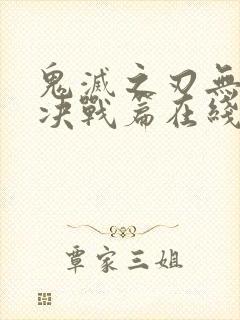 鬼滅之刃無
决戰篇在綫
覃家三姐